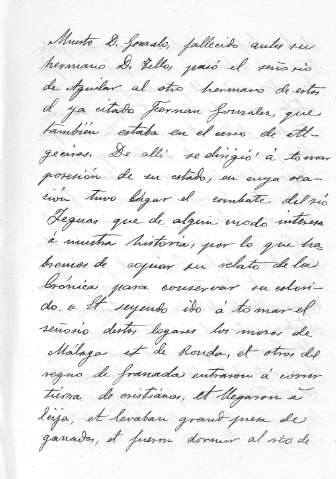 Muerto D. Gonzalo, fallecido antes su
hermano D. Tello, pasó el señorio
de Aguilar al otro hermano de estos
el ya citado Fernan Gonzalez, que
también estaba en el cerco de Al-
geciras. De alli se dirigió á tomar
posesión de su estado, en cuya oca-
sión tuvo lugar el combate del rio
Yeguas que de algun modo interesa
á nuestra historia, por lo que ha-
bremos de copiar su relato de la
Crónica para conservar su colori-
do. "Et seyendo ido á tomar el
señorio destos logares los moros de
Málaga et de Ronda, et otros del
regno de Granada entraron á correr
tierra de cristianos, et llegaron á
Ecija, et levaban grand presa de
ganados, et fueron dormir al rio de